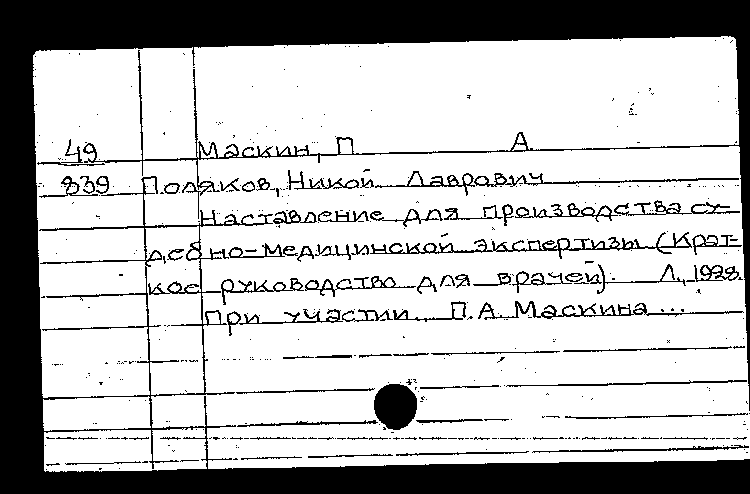 49 Маскин, П А
839 Поляков, Никой Лаврович
Наставление для производства су-
дебно-медицинской экспертизы (Крат-
кое руководство для врачей). Л., 1928.
При участии.. П.А. Маскина ...